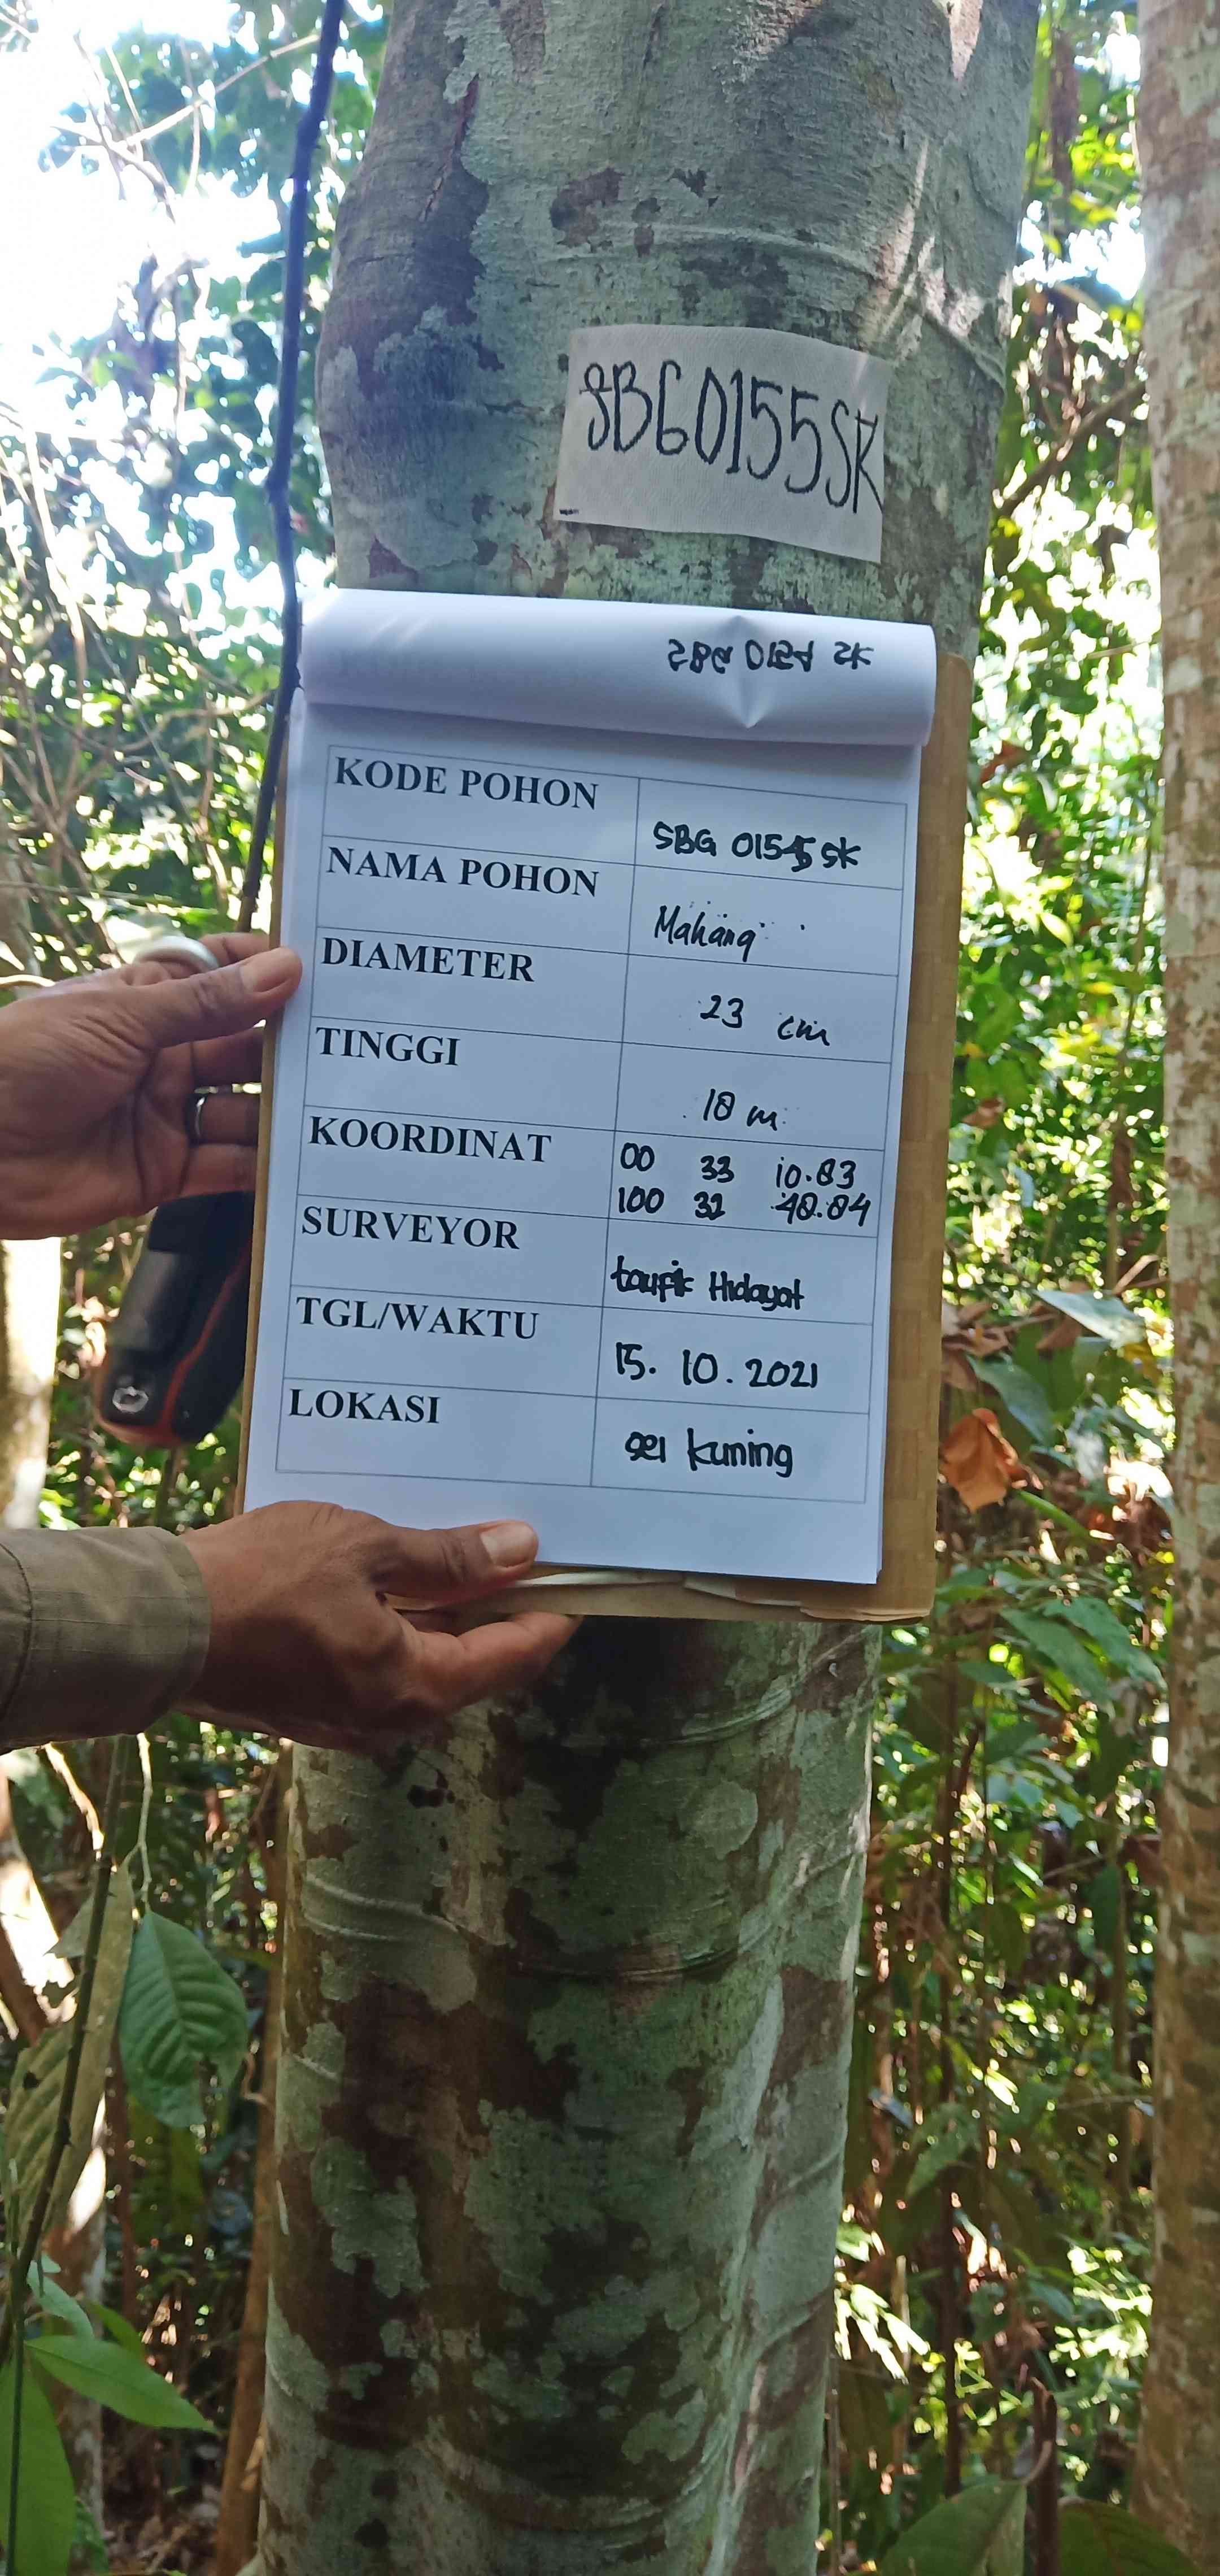 SBG0155SK
SBG 0154 SK
KODE POHON SBG 0155 SK
NAMA POHON Mahang
DIAMETER 23 cm
TINGGI 18 m
KOORDINAT 00 33 10.83
100 32 48.84
SURVEYOR taufik Hidayat
TGL/WAKTU 15. 10. 2021
LOKASI sei kuning